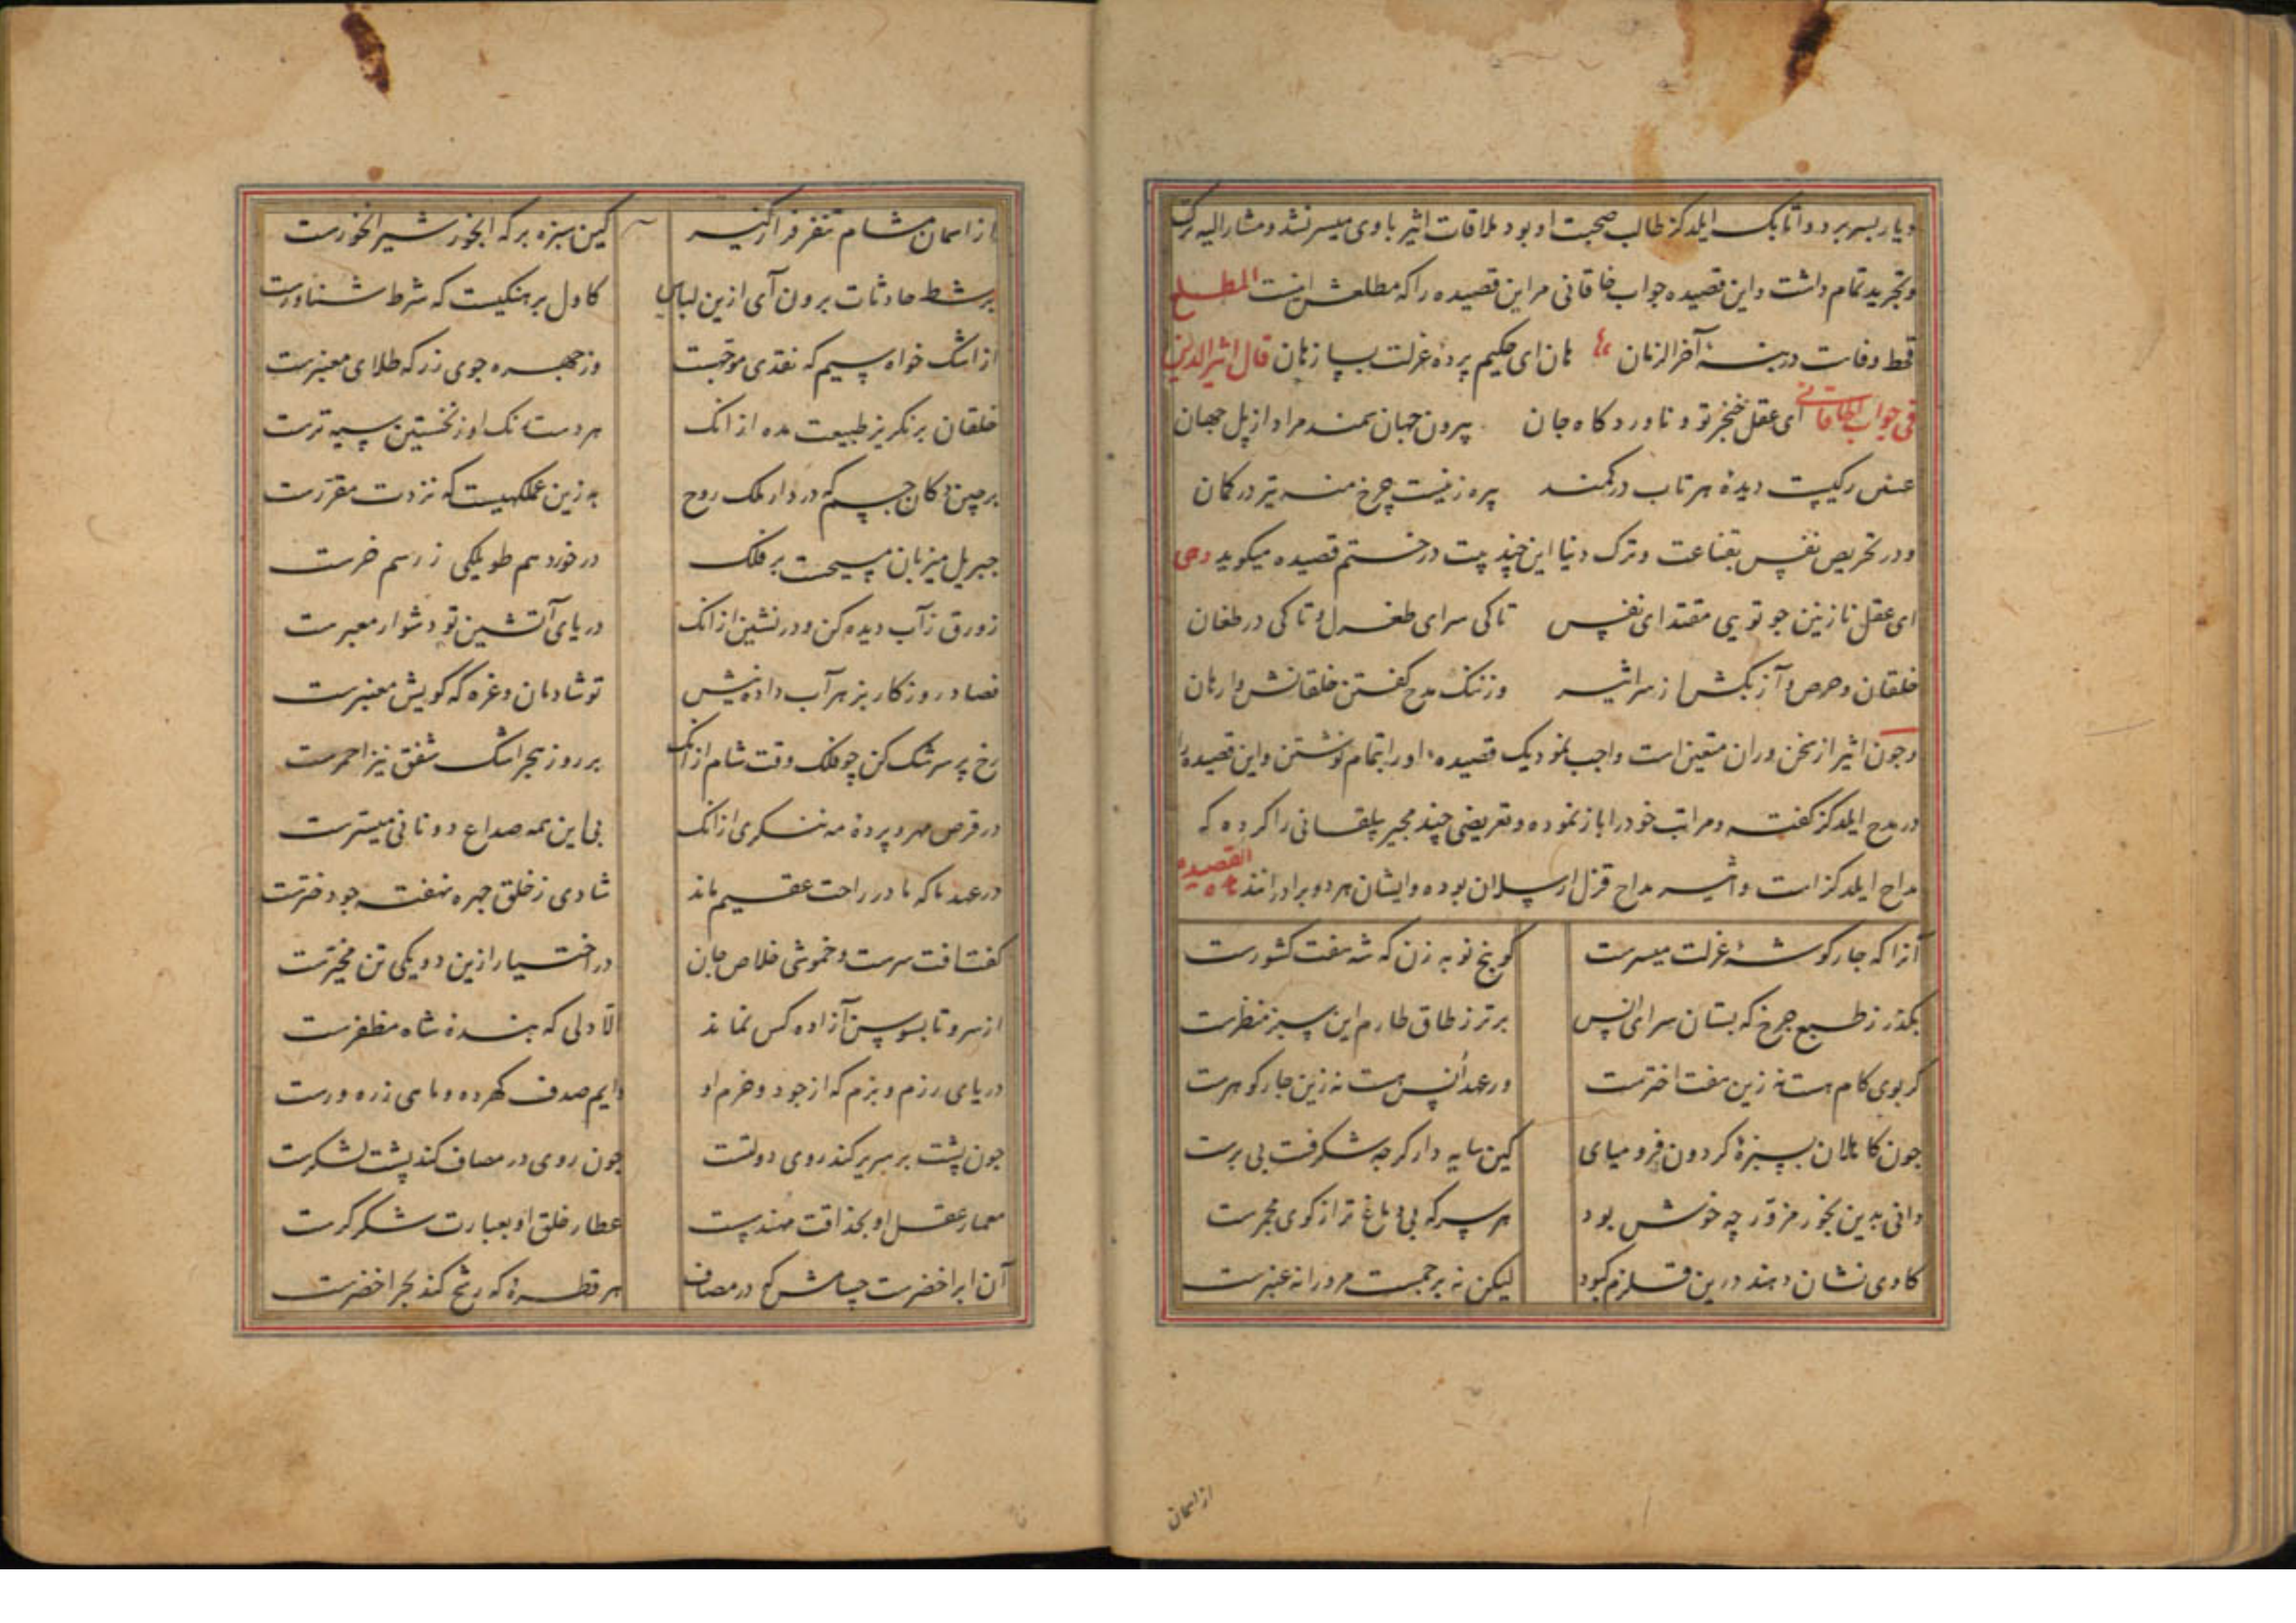 دیار بسر برد و اتابک ایلدکز طالب صحبت او بود ملاقات اثیر با وی میسر نشد و مشار الیه ترک
و تجرید تمام داشت و این قصیده جواب خاقانی مر این قصیده را که مطلعش اینست المطلع
قحط وفاست در بنهٔ آخر الزمان هان ای حکیم پردهٔ عزلت بساز هان قال اثیر الدین
فی جواب الخاقانی ای عقل خنجر تو و ناوردگاه جان بیرون جهان سمند مراد از پل جهان
دیدهٔ برتاب در کمند پیره زنیست چرخ منه تیر در کمان
و در تحریص نفس بقناعت و ترک دنیا این چند بیت در ختم قصیده میکوید وهی
ای عقل نازنین جو تویی مقتدای نفس تا کی سرای طغرل و تا کی در طغان
خلقان و حرص و آز بکش از سر اثیر وز ننک مدح کفتن خلقانش وارهان
و جون اثیر از سخن وران متعین است واجب نمود یک قصیده او را بتمام نوشتن و این قصیده را
در مدح ایلدکز کفته و مراتب خود را باز نموده و تعریضی چند مجیر بیلقانی را کرده که
مداح ایلدکز است و اثیر مداح قزل ارسلان بوده و ایشان هر دو برادرانند القصیده هذه
آنرا که جار کوشهٔ عزلت میسرست کو پنج نوبه زن که شه هفت کشورست
بکذر ز طبع جرخ که بستان سرای انس برتر ز طاق طارم این سبز منظرست
کر بوی کام هست نه زین هفت اخترست ور عهد انس هست نه زین جار کوهرست
جون کاهلان بسبزهٔ کردون فرو میای کین سایه دار کرچه شکرفت بی برست
دانی بدین بخور مزور چه خوش بود هر سر که بی دماغ تر از کوی مجمرست
کاوی نشان دهند درین قلزم کبود لیکن نه پر جمست مر او را نه عنبرست
از اسمان
از اسمان مشام تنفر فراز کیر کین سبزه بر که ابخور شیر ابخورست
بر شط حادثات برون آی ازین لباس کاول برهنکیست که شرط شناورست
از اشک خواه سیم که نقدی موجهست وز جهره جوی زر که طلای معنبرست
خلقان برنکریز طبیعت مده از انک هر دستانک او ز نخستین سیه ترست
برچین دکان جسم که در دار ملک روح به زین عملکهیست که نزدت مقررست
جبریل میزبان مسیحست بر فلک در خورد هم طویلکی ز رسم خرست
زورق ز آب دیده کن و در نشین از انک دریای آتشین تو دشوار معبرست
فصاد روزکار بزهر آب داده نیش تو شادمان و غره که کویش معنبرست
رخ پر سرشک کن چو فلک وقت شام از انک بر روز هجر اشک شفق نیز احمرست
در قرص مهر و پردهٔ مه ننکری از انک بی این همه صداع دو نانی میسرست
در عهد ما که مادر راحت عقیم ماند شادی ز خلق جهره نهفته جو دخترست
کفت افت سرست و خموشی خلاص جان در اختیار ازین دو یکی تن مخیرست
از سرو تا بسوسن آزاده کس نماند الا دلی که بندهٔ شاه مظفرست
دریای رزم و بزم که از جود و حزم او دایم صدف کهرده و ماهی زره ورست
جون پشت بر سریر کند روی دولتست جون روی در مصاف کند پشت لشکرست
معمار عقل او بحذاقت مهندسیست عطار خلق او بعبارت شکرکرست
آن ابر اخضرست حسامش که در مصاف هر قطرهٔ که رشح کند بحر اخضرست